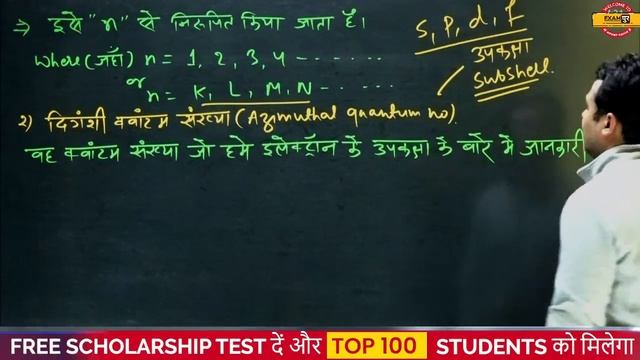 ⇒ इसे "n" से निरूपित किया जाता है।
where (जहाँ) n = 1, 2, 3, 4 - - - - - -
or n = K, L, M, N - - - - - -
s, p, d, f
उपकक्षा
Subshell
2) दिगंशी क्वांटम संख्या (Azimuthal quantum no).
वह क्वांटम संख्या जो हमे इलेक्ट्रॉन के उपकक्षा के बारे मे जानकारी
WELCOME TO
EXAM
FREE SCHOLARSHIP TEST दें और TOP 100 STUDENTS को मिलेगा